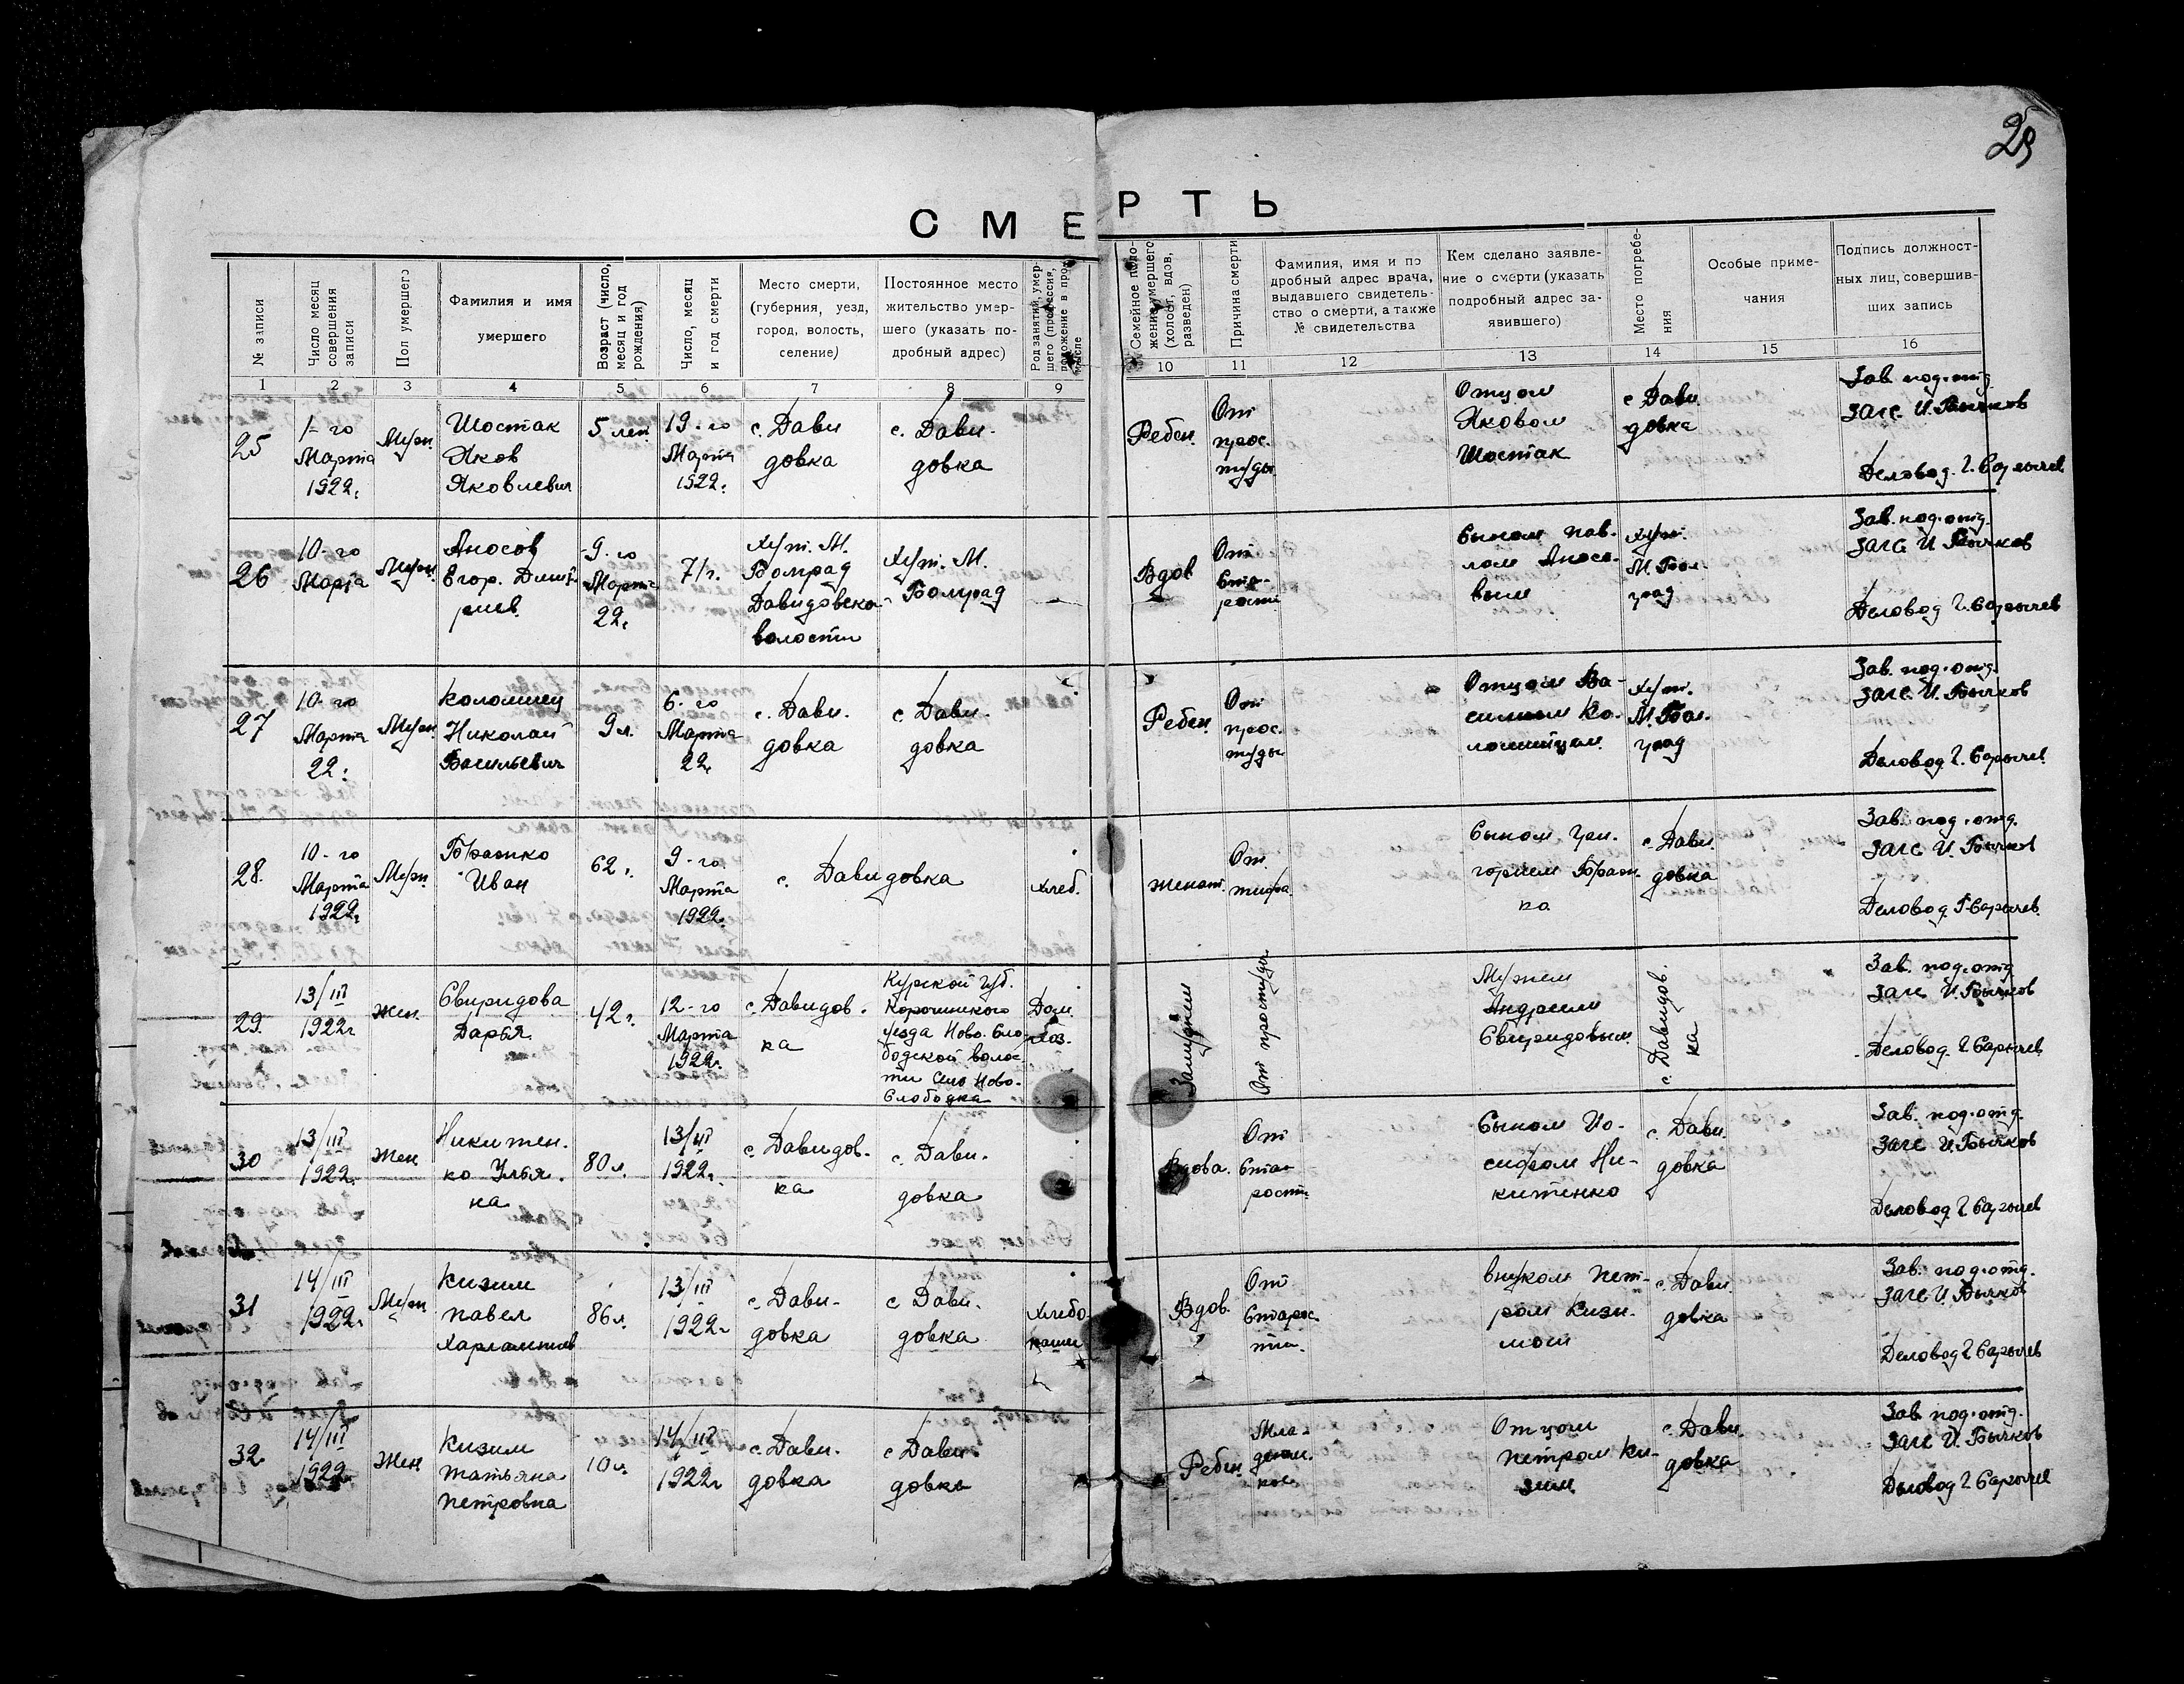 29
СМЕРТЬ
№ записи
Число месяц
совершения
записи
Пол умершего
Фамилия и имя
умершего
Возраст (число,
месяц и год
рождения)
Число, месяц
и год смерти
Место смерти,
(губерния, уезд,
город, волость,
селение)
Постоянное место
жительство умер-
шего (указать по-
дробный адрес)
Род занятий, умер-
шего (профессия,
положение в про-
мысле
Семейное поло-
жение умершего
(холост, вдов,
разведен)
Причина смерти
Фамилия, имя и по
дробный адрес врача,
выдавшего свидетель-
ство о смерти, а также
№ свидетельства
Кем сделано заявле-
ние о смерти (указать
подробный адрес за-
явившего)
Место погребе-
ния
Особые приме-
чания
Подпись должност-
ных лиц, совершив-
ших запись
1 2 3 4 5 6 7 8 9 10 11 12 13 14 15 16
25
1-го
Марта
1922г.
Мужс.
Шостак
Яков
Яковлевич
5 лет
19-го
Марта
1922г.
с. Дави
довка
с. Дави-
довка
Ребен.
От
прос.
туды
Отцом
Яковом
Шостак
с Дави.
довка
Зав. под.отд.
загс. И. Бычков
Деловод. Г. Сарычев
26
10-го
Марта
Мужс.
Аносов
Егор. Дмит-
риев.
9-го
Марта
22г.
71г.
Хут. М.
Болград
Давидовско
волости
Хут. М.
Болград
Вдов
От
Ста-
рости
Сыном Пав-
лом Аносо-
вым
Хут.
М. Бол-
град
Зав. под.отд.
Загс И. Бычков
Деловод Г. Сарычев
27
10-го
Марта
22г.
Мужс.
Коломиец
Николай
Васильевич
9л.
6-го
Марта
22г.
с. Дави.
довка
с Дави.
довка
Ребен.
От
прос.
туды
Отцом Ва-
силием Ко-
ломийцем.
Хут.
М. Бол.
град
Зав. под.отд.
Загс. И. Бычков
Деловод Г. Сарычев.
28.
10-го
Марта
1922г.
Мужс.
Бражко
Иван
62г.
9-го
Марта
1922г.
с. Давидовка
Хлеб.
женат.
От
тифа.
Сыном Гри-
горием Браж-
ко
с. Дави.
довка
Зав. под.отд.
Загс И. Бычков
Деловод. Г. Сарычев.
29.
13/III
1922г
Жен.
Свиридова
Дарья.
42г.
12-го
Марта
1922г.
с. Давидов.
ка
Курской губ.
Корочинского
Уезда Ново. Сло-
бодской волос-
ти Село Ново-
Слободка
Дом.
хоз.
Замужем
От простуды.
Мужем
Андреем
Свиридовым.
с. Давидов.
ка
Зав. под.отд
Загс И. Бычков
Деловод. Г. Сарычев
30
13/III
1922г.
Жен
Никитен.
ко Улья.
на
80л.
13/III
1922г.
с. Давидов-
ка
с. Дави.
довка
Вдова.
От
Ста-
рости
Сыном Ио-
сифом Ни-
китенко
с. Дави.
довка
Зав. под.отд.
Загс И. Бычков
Деловод. Г. Сарычев
31
14/III
1922г.
Мужс.
Кизим
Павел
Харлампиев
86л.
13/III
1922г
с. Дави-
довка
с Дави.
довка
Хлебо
паше
ц
Вдов.
От
Старос-
ти.
внуком Пет-
ром Кизи-
мом
с. Дави.
довка
Зав. под.отд.
Загс И. Бычков
Деловод Г Сарычев
32.
14/III
1922г
Жен.
Кизим
Татьяна
Петровна
10л.
14/III
1922г
с. Дави.
довка
с. Дави.
довка
Ребен.
Мла-
денч.
кое
Отцом
Петром Ки-
зим
с. Дави.
довка
Зав под.отд.
Загс И. Бычков
Деловод Г. Сарычев